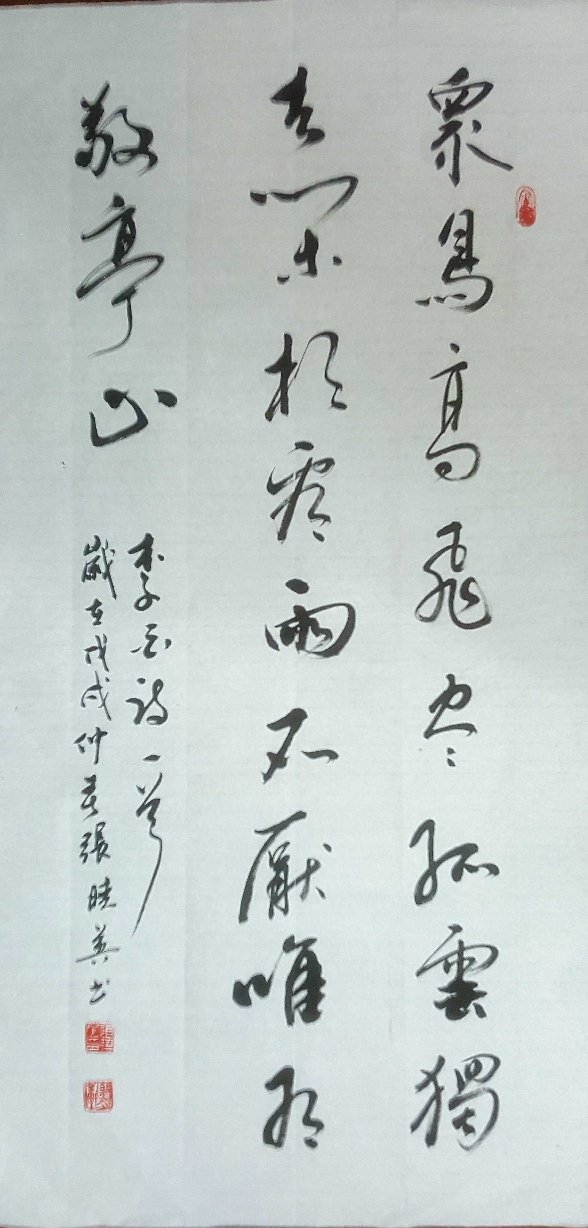 眾鳥高飛尽孤雲獨
去閑相看兩不厭唯有
敬亭山
李白詩一首
歲在戊戌仲春張晓英书